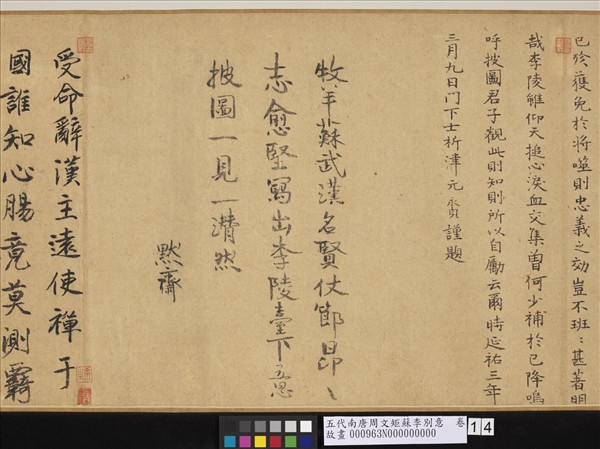 已於獲免於將噬則忠義之効豈不班〻甚著明
哉李陵雖仰天搥心淚血交集曾何少補於已降嗚
呼披圖君子觀此則知則所以自勵云爾時延祐三年
三月九日門下士析津元質謹題
牧羊蘇武漢名賢仗節昂〻
志愈堅寫出李陵臺下思
披圖一見一潸然
默齋
受命辭漢主遠使禪于
國誰知心腸竟莫測霸
五代南唐周文矩蘇李別意 卷
故畫 000963N000000000
14